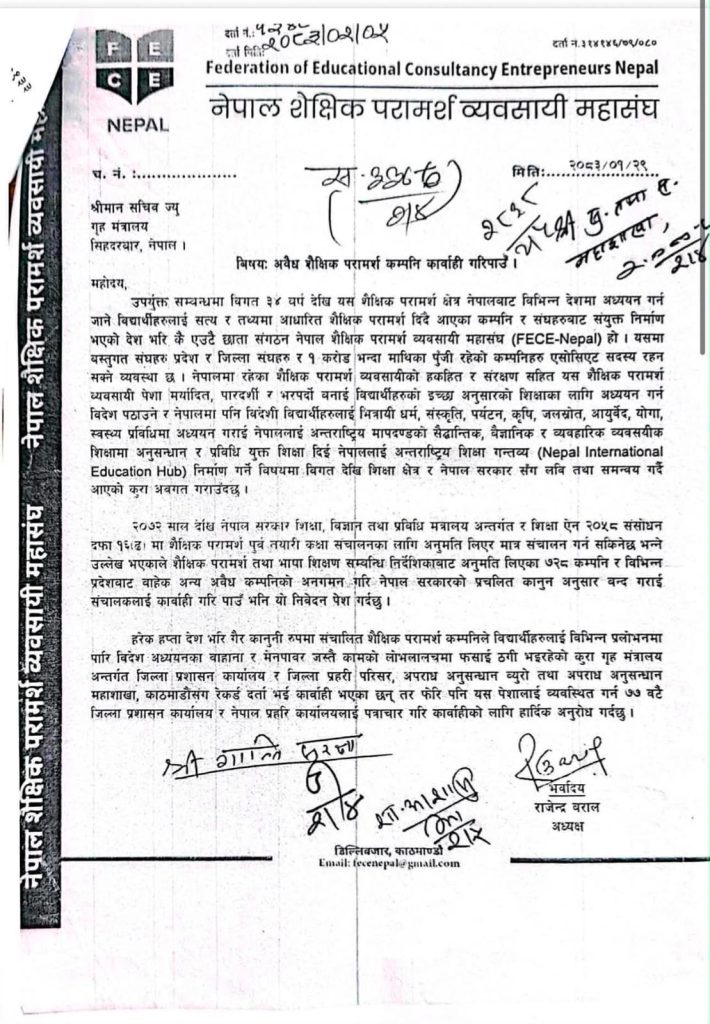 दर्ता नं.:
दर्ता मितिः २०८३/०२/०५
दर्ता नं.३१४१४६/७९/०८०
F E
C E
NEPAL
Federation of Educational Consultancy Entrepreneurs Nepal
नेपाल शैक्षिक परामर्श व्यवसायी महासंघ
च. नं. :....................
मितिः...२०८३/०१/२९...
श्रीमान सचिव ज्यु
गृह मंत्रालय
सिहदरबार, नेपाल ।
विषयः अवैध शैक्षिक परामर्श कम्पनि कार्वाही गरिपाउँ ।
महोदय,
उपर्युक्त सम्वन्धमा विगत ३४ वर्ष देखि यस शैक्षिक परामर्श क्षेत्र नेपालबाट विभिन्न देशमा अध्ययन गर्न
जाने विद्यार्थीहरुलाई सत्य र तथ्यमा आधारित शैक्षिक परामर्श दिदै आएका कम्पनि र संघहरुबाट संयुक्त निर्माण
भएको देश भरि कै एउटै छाता संगठन नेपाल शैक्षिक परामर्श व्यवसायी महासंघ (FECE-Nepal) हो । यसमा
वस्तुगत संघहरु प्रदेश र जिल्ला संघहरु र १ करोड भन्दा माथिका पुँजी रहेको कम्पनिहरु एसोसिएट सदस्य रहन
सक्ने व्यवस्था छ । नेपालमा रहेका शैक्षिक परामर्श व्यवसायीको हकहित र संरक्षण सहित यस शैक्षिक परामर्श
व्यवसायी पेशा मर्यादित, पारदर्शी र भरपर्दो बनाई विद्यार्थीहरुको इच्छा अनुसारको शिक्षाका लागि अध्ययन गर्न
विदेश पठाउने र नेपालमा पनि विदेशी विद्यार्थीहरुलाई भित्रायी धर्म, संस्कृति, पर्यटन, कृषि, जलस्रोत, आयुर्वेद, योगा,
स्वस्थ्य प्रविधिमा अध्ययन गराई नेपाललाई अन्तराष्ट्रिय मापदण्डको सैद्धान्तिक, वैज्ञानिक र व्यवहारिक व्यवसयीक
शिक्षामा अनुसन्धान र प्रविधि युक्त शिक्षा दिई नेपाललाई अन्तराष्ट्रिय शिक्षा गन्तव्य (Nepal International
Education Hub) निर्माण गर्ने विषयमा विगत देखि शिक्षा क्षेत्र र नेपाल सरकार संग लवि तथा समन्वय गर्दै
आएको कुरा अवगत गराउंदछु ।
२०७२ साल देखि नेपाल सरकार शिक्षा, विज्ञान तथा प्रविधि मत्रालय अन्तर्गत र शिक्षा ऐन २०५८ संसोधन
दफा १६(ढ) मा शैक्षिक परामर्श पुर्व तयारी कक्षा संचालनका लागि अनुमति लिएर मात्र संचालन गर्न सकिनेछ भन्ने
उल्लेख भएकाले शैक्षिक परामर्श तथा भाषा शिक्षण सम्वन्धि निर्देशिकाबाट अनुमति लिएका ७२८ कम्पनि र विभिन्न
प्रदेशबाट वाहेक अन्य अवैध कम्पनिको अनगमन गरि नेपाल सरकारको प्रचलित कानुन अनुसार बन्द गराई
संचालकलाई कार्वाही गरि पाउँ भनि यो निवेदन पेश गर्दछु ।
हरेक हप्ता देश भरि गैर कानुनी रुपमा संचालित शैक्षिक परामर्श कम्पनिले विद्यार्थीहरुलाई विभिन्न प्रलोभनमा
पारि विदेश अध्ययनका वाहाना र मेनपावर जस्तै कामको लोभलालचमा फसाई ठगी भइरहेको कुरा गृह मंत्रालय
अन्तर्गत जिल्ला प्रशासन कार्यालय र जिल्ला प्रहरी परिसर, अपराध अनुसन्धान व्युरो तथा अपराध अनुसन्धान
महाशाखा, काठमाडौसंग रेकर्ड दर्ता भई कार्वाही भएका छन् तर फेरि पनि यस पेशालाई व्यवस्थित गर्न ७७ वटै
जिल्ला प्रशासन कार्यालय र नेपाल प्रहरि कार्यालयलाई पत्राचार गरि कार्वाहीको लागि हार्दिक अनुरोध गर्दछु ।
श्री शान्ति सुरक्षा
भवदीय
राजेन्द्र बराल
अध्यक्ष
डिल्लिबजार, काठमाण्डौ
Email: fecenepal@gmail.com
नेपाल शैक्षिक परामर्श व्यवसायी महासंघ